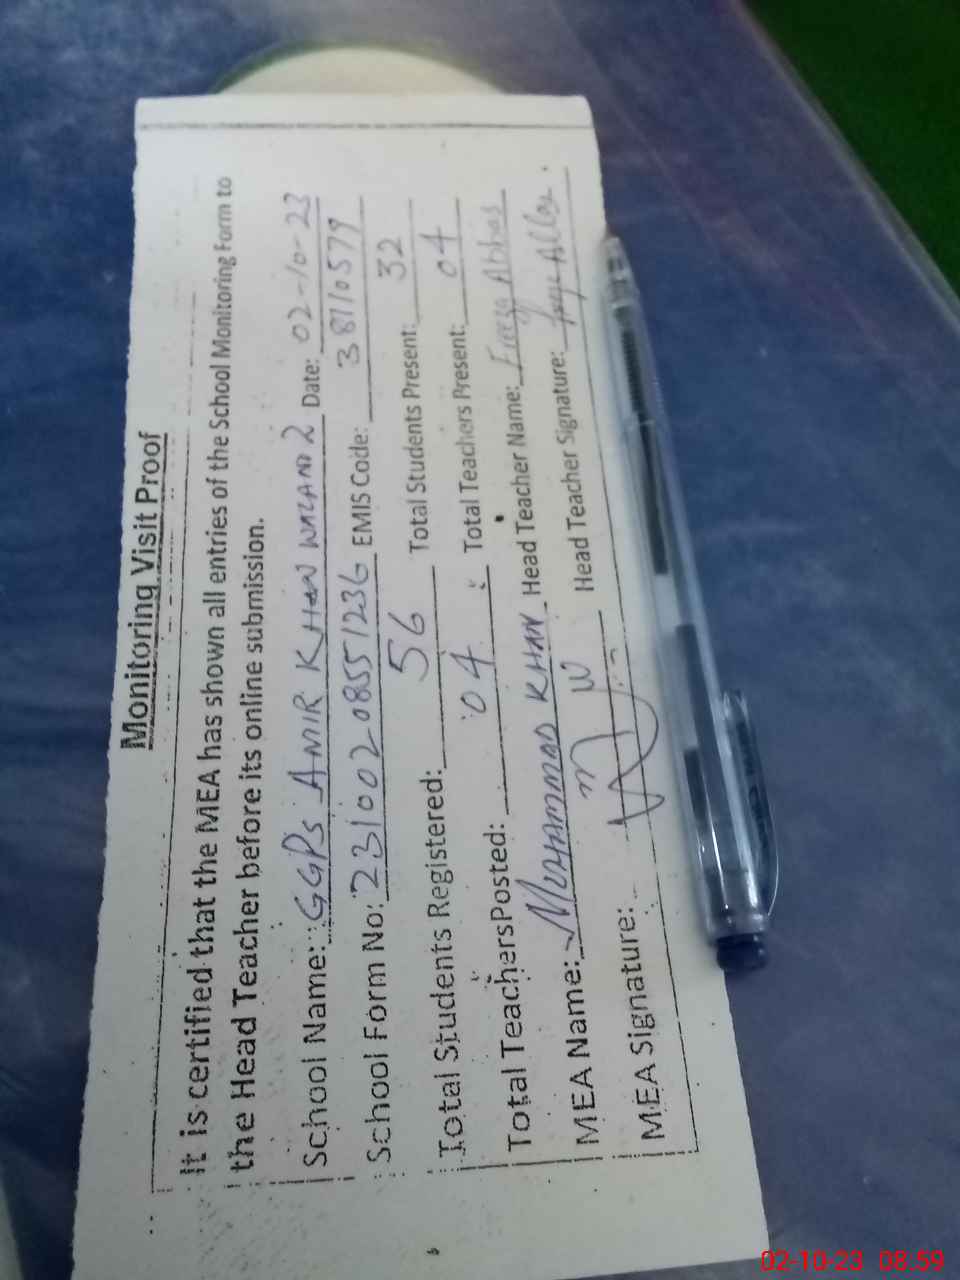 Monitoring Visit Proof
It is certified that the MEA has shown all entries of the School Monitoring Form to
the Head Teacher before its online submission.
School Name: GGPS AMIR KHAN WALAND 2 Date: 02-10-23
School Form No: 23100208551236 EMIS Code: 38110579
Total Students Registered: 56 Total Students Present: 32
Total TeachersPosted: 04 Total Teachers Present: 04
MEA Name: MUHAMMAD KHAN Head Teacher Name: Freeza Abbas
MEA Signature: Head Teacher Signature:
02-10-23 08:59